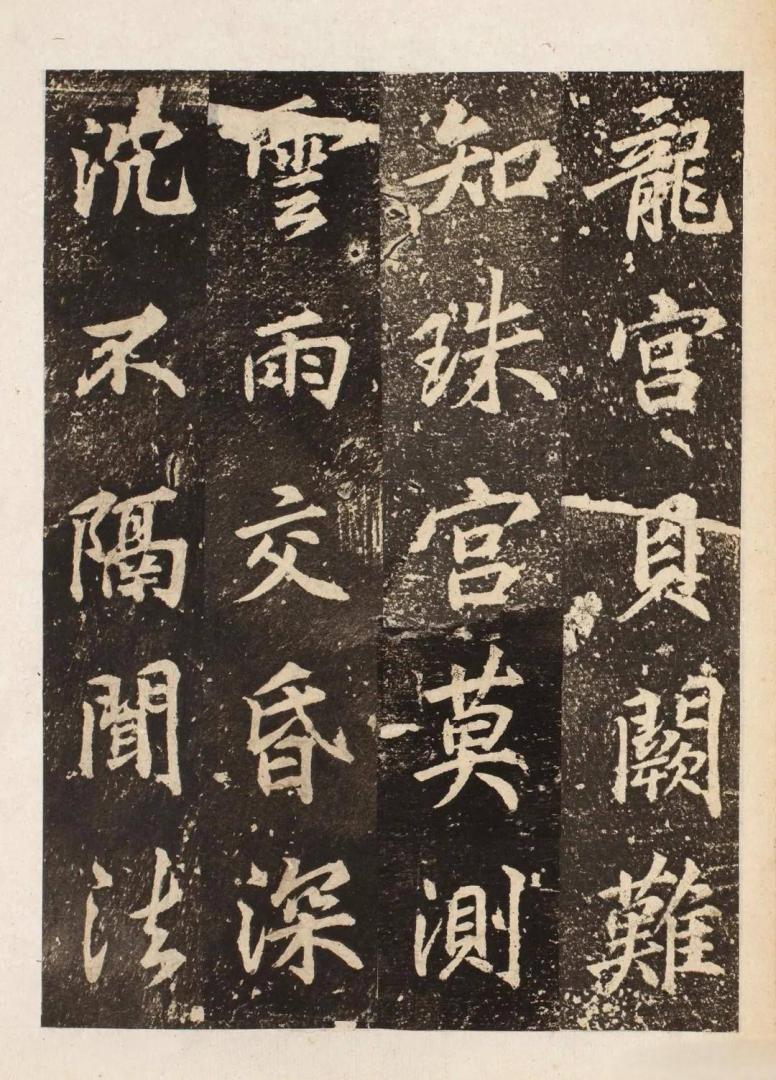 龍宮貝闕難
知珠宮莫測
雲雨交昏深
沈不隔聞法